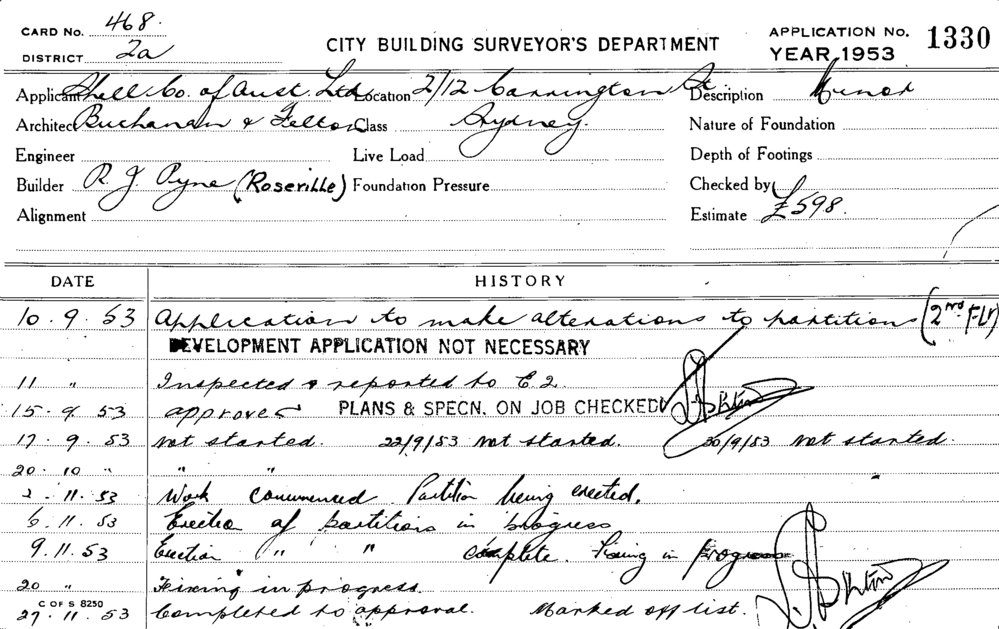 CARD No. 468.
DISTRICT 2a
CITY BUILDING SURVEYOR'S DEPARTMENT
APPLICATION No. 1330
YEAR 1953
Applicant Shell Co. of Aust. Ltd. Location 2/12 Carrington St Description Minor
Architect Buchanan & Felton Class Sydney. Nature of Foundation
Engineer Live Load Depth of Footings
Builder R. J. Pyne (Roseville) Foundation Pressure Checked by
Alignment Estimate £598.
DATE HISTORY
10.9.53 Application to make alterations to partitions (2nd Flr)
DEVELOPMENT APPLICATION NOT NECESSARY
11 " Inspected & reported to
15.9.53 approved PLANS & SPECN. ON JOB CHECKED
17.9.53 not started. 22/9/53 not started. 30/9/53 not started.
20.10 " " "
2.11.53 Work commenced. Partition being erected.
6.11.53 Erection of partitions in progress
9.11.53 Erection " " complete. Fixing in progress
20 " Fixing in progress.
C OF S 8250
27.11.53 Completed to approval. Marked off list.